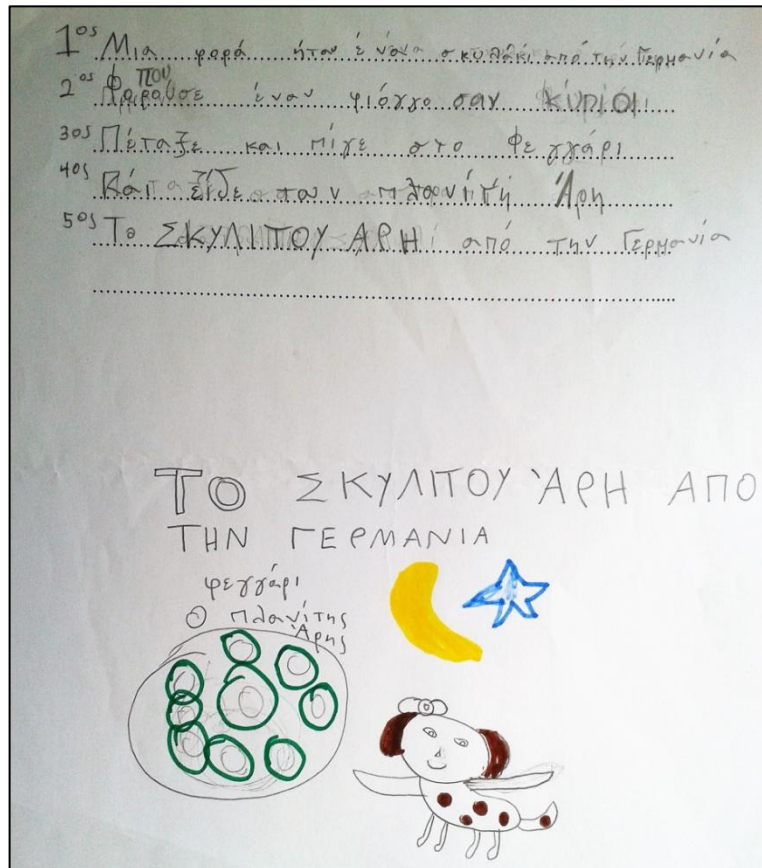 1ος Μια φορά ήταν ένα σκυλάκι από την Γερμανία
2ος που Φορούσε έναν φιόγγο σαν κύριοι
3ος Πέταξε και πίγε στο Φεγγάρι
4ος Κάι είδε τον πλανίτή Άρη
5ος Το ΣΚΥΛΙ ΤΟΥ ΑΡΗ από την Γερμανία
ΤΟ ΣΚΥΛΙ ΤΟΥ ΆΡΗ ΑΠΟ
ΤΗΝ ΓΕΡΜΑΝΙΑ
φεγγάρι
Ο πλανίτης
Άρης